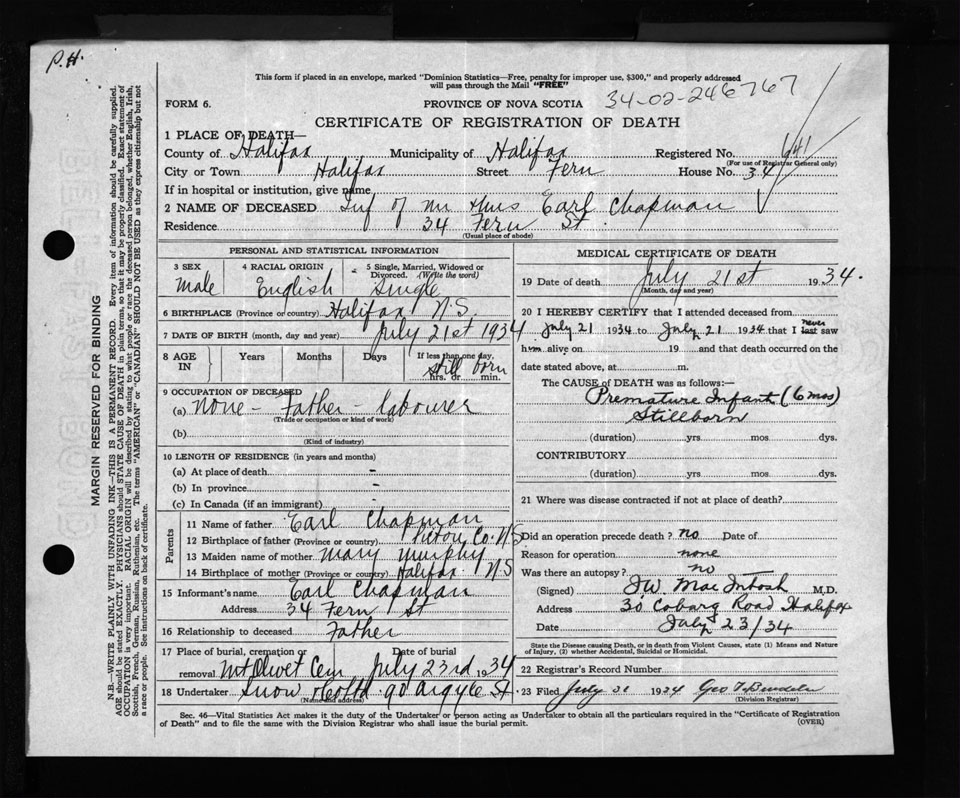 P.H.
This form if placed in an envelope, marked "Dominion Statistics—Free, penalty for improper use, $300," and properly addressed
will pass through the Mail "FREE"
FORM 6.
PROVINCE OF NOVA SCOTIA
34-02-246767
CERTIFICATE OF REGISTRATION OF DEATH
1 PLACE OF DEATH—
County of Halifax Municipality of Halifax Registered No. 641
(For use of Registrar General only)
City or Town Halifax Street Fern House No. 34
If in hospital or institution, give name
2 NAME OF DECEASED Inf of Mr & Mrs Earl Chapman
Residence 34 Fern St.
(Usual place of abode)
PERSONAL AND STATISTICAL INFORMATION
3 SEX Male
4 RACIAL ORIGIN English
5 Single, Married, Widowed or Divorced. (Write the word) Single
6 BIRTHPLACE (Province or country) Halifax N.S.
7 DATE OF BIRTH (month, day and year) July 21st 1934
8 AGE IN Years Months Days If less than one day, hrs. or min. still born
9 OCCUPATION OF DECEASED
(a) None - Father - labourer
(Trade or occupation or kind of work)
(b)
(Kind of industry)
10 LENGTH OF RESIDENCE (in years and months)
(a) At place of death -
(b) In province -
(c) In Canada (if an immigrant) -
Parents
11 Name of father Earl Chapman
12 Birthplace of father (Province or country) Pictou Co. N.S
13 Maiden name of mother Mary Murphy
14 Birthplace of mother (Province or country) Halifax N.S
15 Informant's name Earl Chapman
Address 34 Fern St
16 Relationship to deceased Father
17 Place of burial, cremation or removal Mt Olivet Cem Date of burial July 23rd 1934
18 Undertaker Snow & Co Ltd 90 Argyle St
(Name and address)
MEDICAL CERTIFICATE OF DEATH
19 Date of death July 21st 1934.
(Month, day and year)
20 I HEREBY CERTIFY that I attended deceased from
July 21 1934 to July 21 1934 that I never last saw
him alive on 19 and that death occurred on the
date stated above, at m.
The CAUSE of DEATH was as follows:—
Premature Infant (6 mos)
Stillborn
(duration) yrs mos. dys.
CONTRIBUTORY
(duration) yrs. mos. dys.
21 Where was disease contracted if not at place of death?
Did an operation precede death? no Date of
Reason for operation none
Was there an autopsy? no
(Signed) J.W. MacIntosh M,D.
Address 30 Coburg Road Halifax
Date July 23/34
State the Disease causing Death, or in Death from Violent Causes, state (1) Means and Nature
of Injury, (2) whether Accidental, Suicidal or Homicidal.
22 Registrar's Record Number
23 Filed July 31 1934 Geo
(Division Registrar)
Sec. 46—Vital Statistics Act makes it the duty of the Undertaker or person acting as Undertaker to obtain all the particulars required in the "Certificate of Registration
of Death" and to file the same with the Division Registrar who shall issue the burial permit.
(OVER)
MARGIN RESERVED FOR BINDING
N.B.—WRITE PLAINLY WITH UNFADING INK—THIS IS A PERMANENT RECORD. Every item of information should be carefully supplied.
AGE should be stated EXACTLY. PHYSICIANS should STATE CAUSE OF DEATH in plain terms, so that it may be properly classified. Exact statement of
OCCUPATION is very important. RACIAL ORIGIN will be described by stating to what people or race the deceased person belonged, whether English, Irish,
Scottish, French, German, Russian, Ruthenian, etc. The terms "AMERICAN" or "CANADIAN" SHOULD NOT BE USED as they express citizenship but not
a race or people. See instructions on back of certificate.